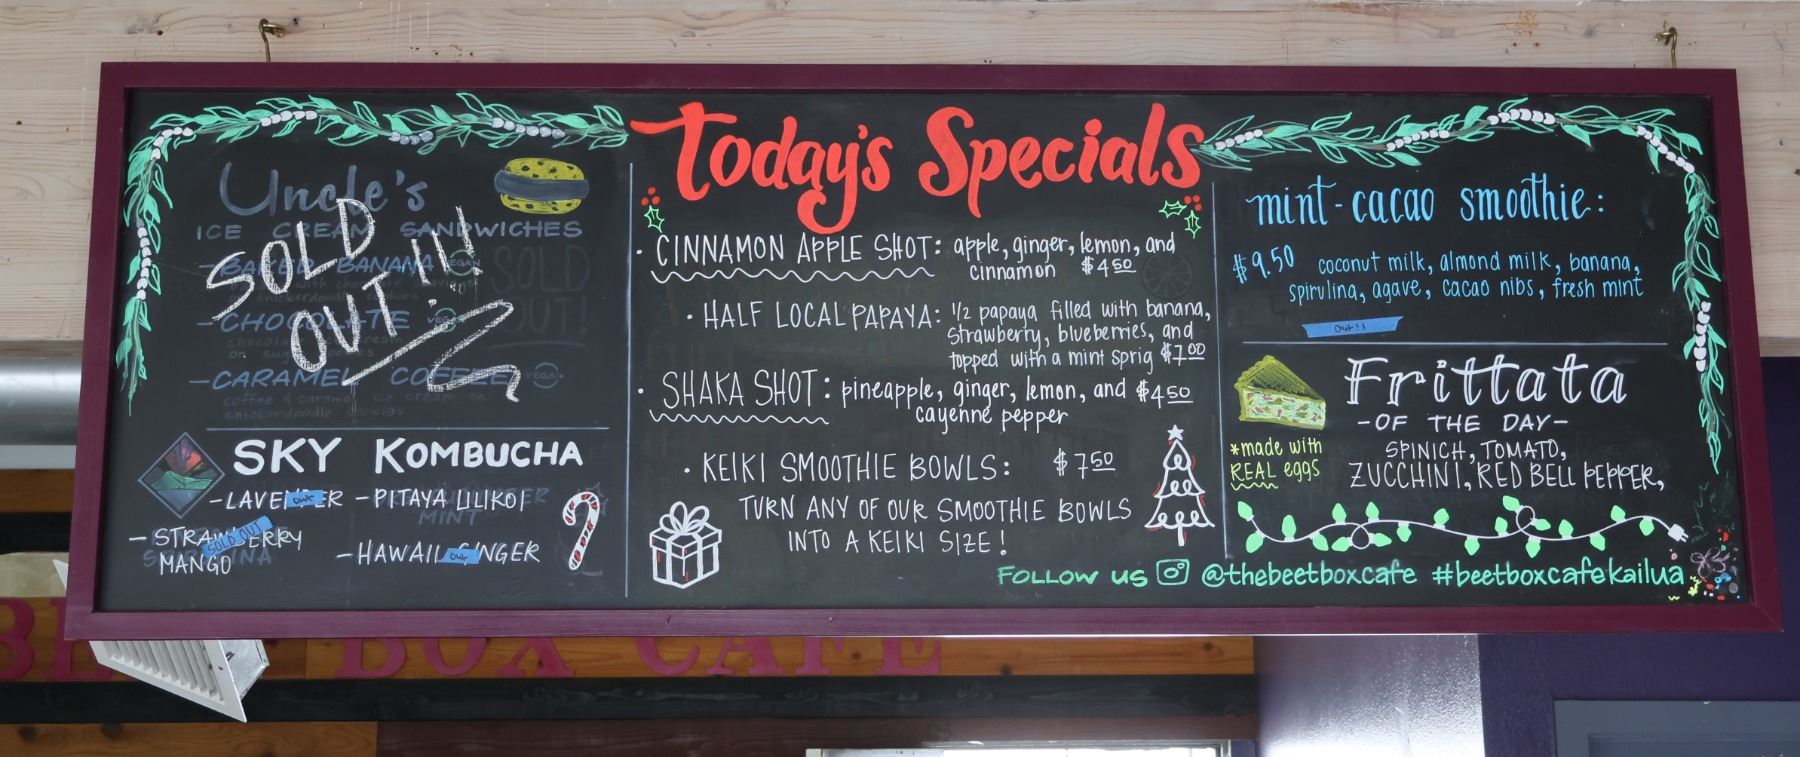 Today's Specials
Uncle's
ICE CREAM SANDWICHES
SOLD
OUT!!!
- BAKED BANANA VEGAN
snickerdoodle cookies
SOLD
OUT!
- CHOCOLATE VEGAN
- CARAMEL COFFEE VEGAN
coffee & caramel ice cream on
snickerdoodle cookies
SKY KOMBUCHA
- LAVENDER out - PITAYA LILIKOI
MINT
- STRAWBERRY SOLD OUT
MANGO
- HAWAII GINGER out
• CINNAMON APPLE SHOT: apple, ginger, lemon, and
cinnamon $4 50
• HALF LOCAL PAPAYA: 1/2 papaya filled with banana,
strawberry, blueberries, and
topped with a mint sprig $7 00
• SHAKA SHOT: pineapple, ginger, lemon, and $4 50
cayenne pepper
• KEIKI SMOOTHIE BOWLS: $7 50
TURN ANY OF OUR SMOOTHIE BOWLS
INTO A KEIKI SIZE!
mint-cacao smoothie:
$9.50 coconut milk, almond milk, banana,
spirulina, agave, cacao nibs, fresh mint
Out!!
Frittata
-OF THE DAY-
*made with
REAL eggs
SPINICH, TOMATO,
ZUCCHINI, RED BELL PEPPER,
FOLLOW US @thebeetboxcafe #beetboxcafekailua
BOX CAFE